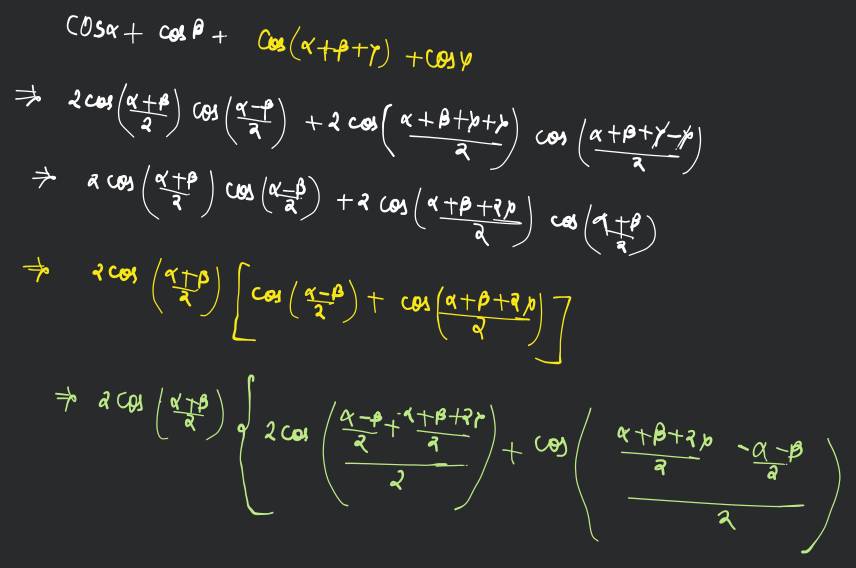 cosα + cosβ + cos(α+β+γ) + cosγ
⇒ 2cos((α+β)/2) cos((α-β)/2) + 2cos((α+β+γ+γ)/2) cos((α+β+γ-γ)/2)
⇒ 2cos((α+β)/2) cos((α-β)/2) + 2cos((α+β+2γ)/2) cos((α+β)/2)
⇒ 2cos((α+β)/2) [cos((α-β)/2) + cos((α+β+2γ)/2)]
⇒ 2cos((α+β)/2) { 2cos(((α-β)/2 + (α+β+2γ)/2)/2) + cos(((α+β+2γ)/2 - (α-β)/2)/2)